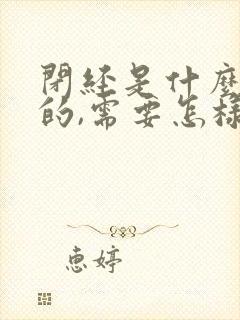 閉経是什麼
的,需要怎樣
惠婷